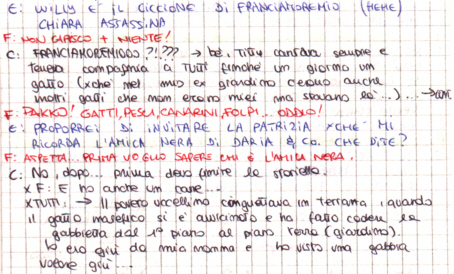 E: WILLY E' IL CICCIONE DI FRANCIAMOREMIO (HEHE)
CHIARA ASSASSINA
F: NON CAPISCO + NIENTE!
C: FRANCIAMOREMIOOO ?!??? → be', Titti cantava sempre e
teneva compagnia a TUTTI finché un giorno un
gatto (xché nel mio ex giardino c'erano anche
molti gatti che non erano miei ma stavano là...) ... →
F: PAKKO! GATTI, PESCI, CANARINI, FOLPI... ODDIO!
E: PROPORREI DI INVITARE LA PATRIZIA XCHE' MI
RICORDA L'AMICA NERA DI DARIA & CO. CHE DITE?
F: ASPETTA... PRIMA VOGLIO SAPERE CHI È L'AMICA NERA.
C: No, dopo... prima devo finire la storiella.
x F: E ho anche un cane...
x TUTTI: → Il povero uccellino cinguettava in terrazza, quando
il gatto malefico si è avvicinato e ha fatto cadere la
gabbietta dal 1° piano al piano terra (giardino).
Io ero giù da mia nonna e ho visto una gabbia
volare giù...